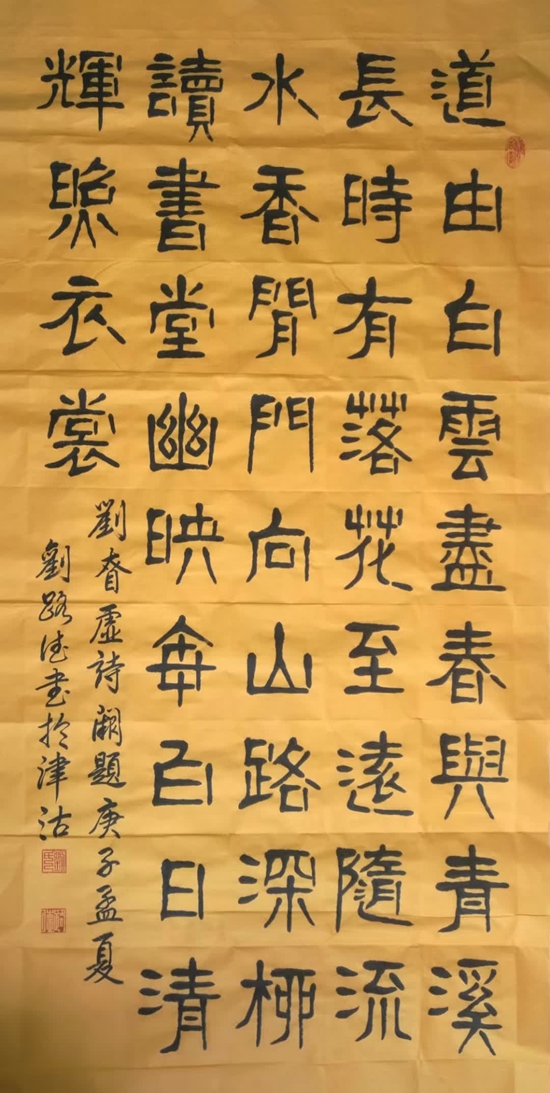 道由白雲盡春與青溪
長時有落花至遠隨流
水香閒門向山路深柳
讀書堂幽映每白日清
輝照衣裳
劉眘虛詩闕題庚子孟夏
劉路德書於津沽